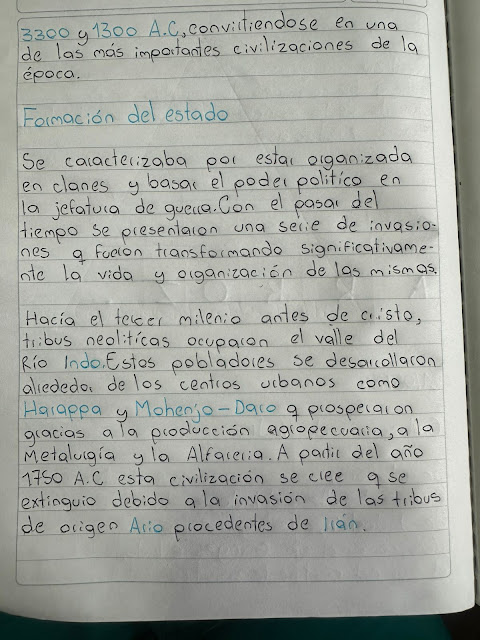 3300 y 1300 A.C, convirtiendose en una
de las más importantes civilizaciones de la
época.
Formación del estado
Se caracterizaba por estar organizada
en clanes y basar el poder politico en
la jefatura de guerra. Con el pasar del
tiempo se presentaron una serie de invasio-
nes q fueron transformando significativame-
nte la vida y organización de las mismas.
Hacía el tercer milenio antes de cristo,
tribus neolíticas ocuparon el valle del
Río Indo. Estos pobladores se desarrollaron
alrededor de los centros urbanos como
Harappa y Mohenjo-Daro q prosperaron
gracias a la producción agropecuaria, a la
Metalurgía y la Alfareria. A partir del año
1750 A.C esta civilización se cree q se
extinguio debido a la invasión de las tribus
de origen Ario procedentes de Irán.